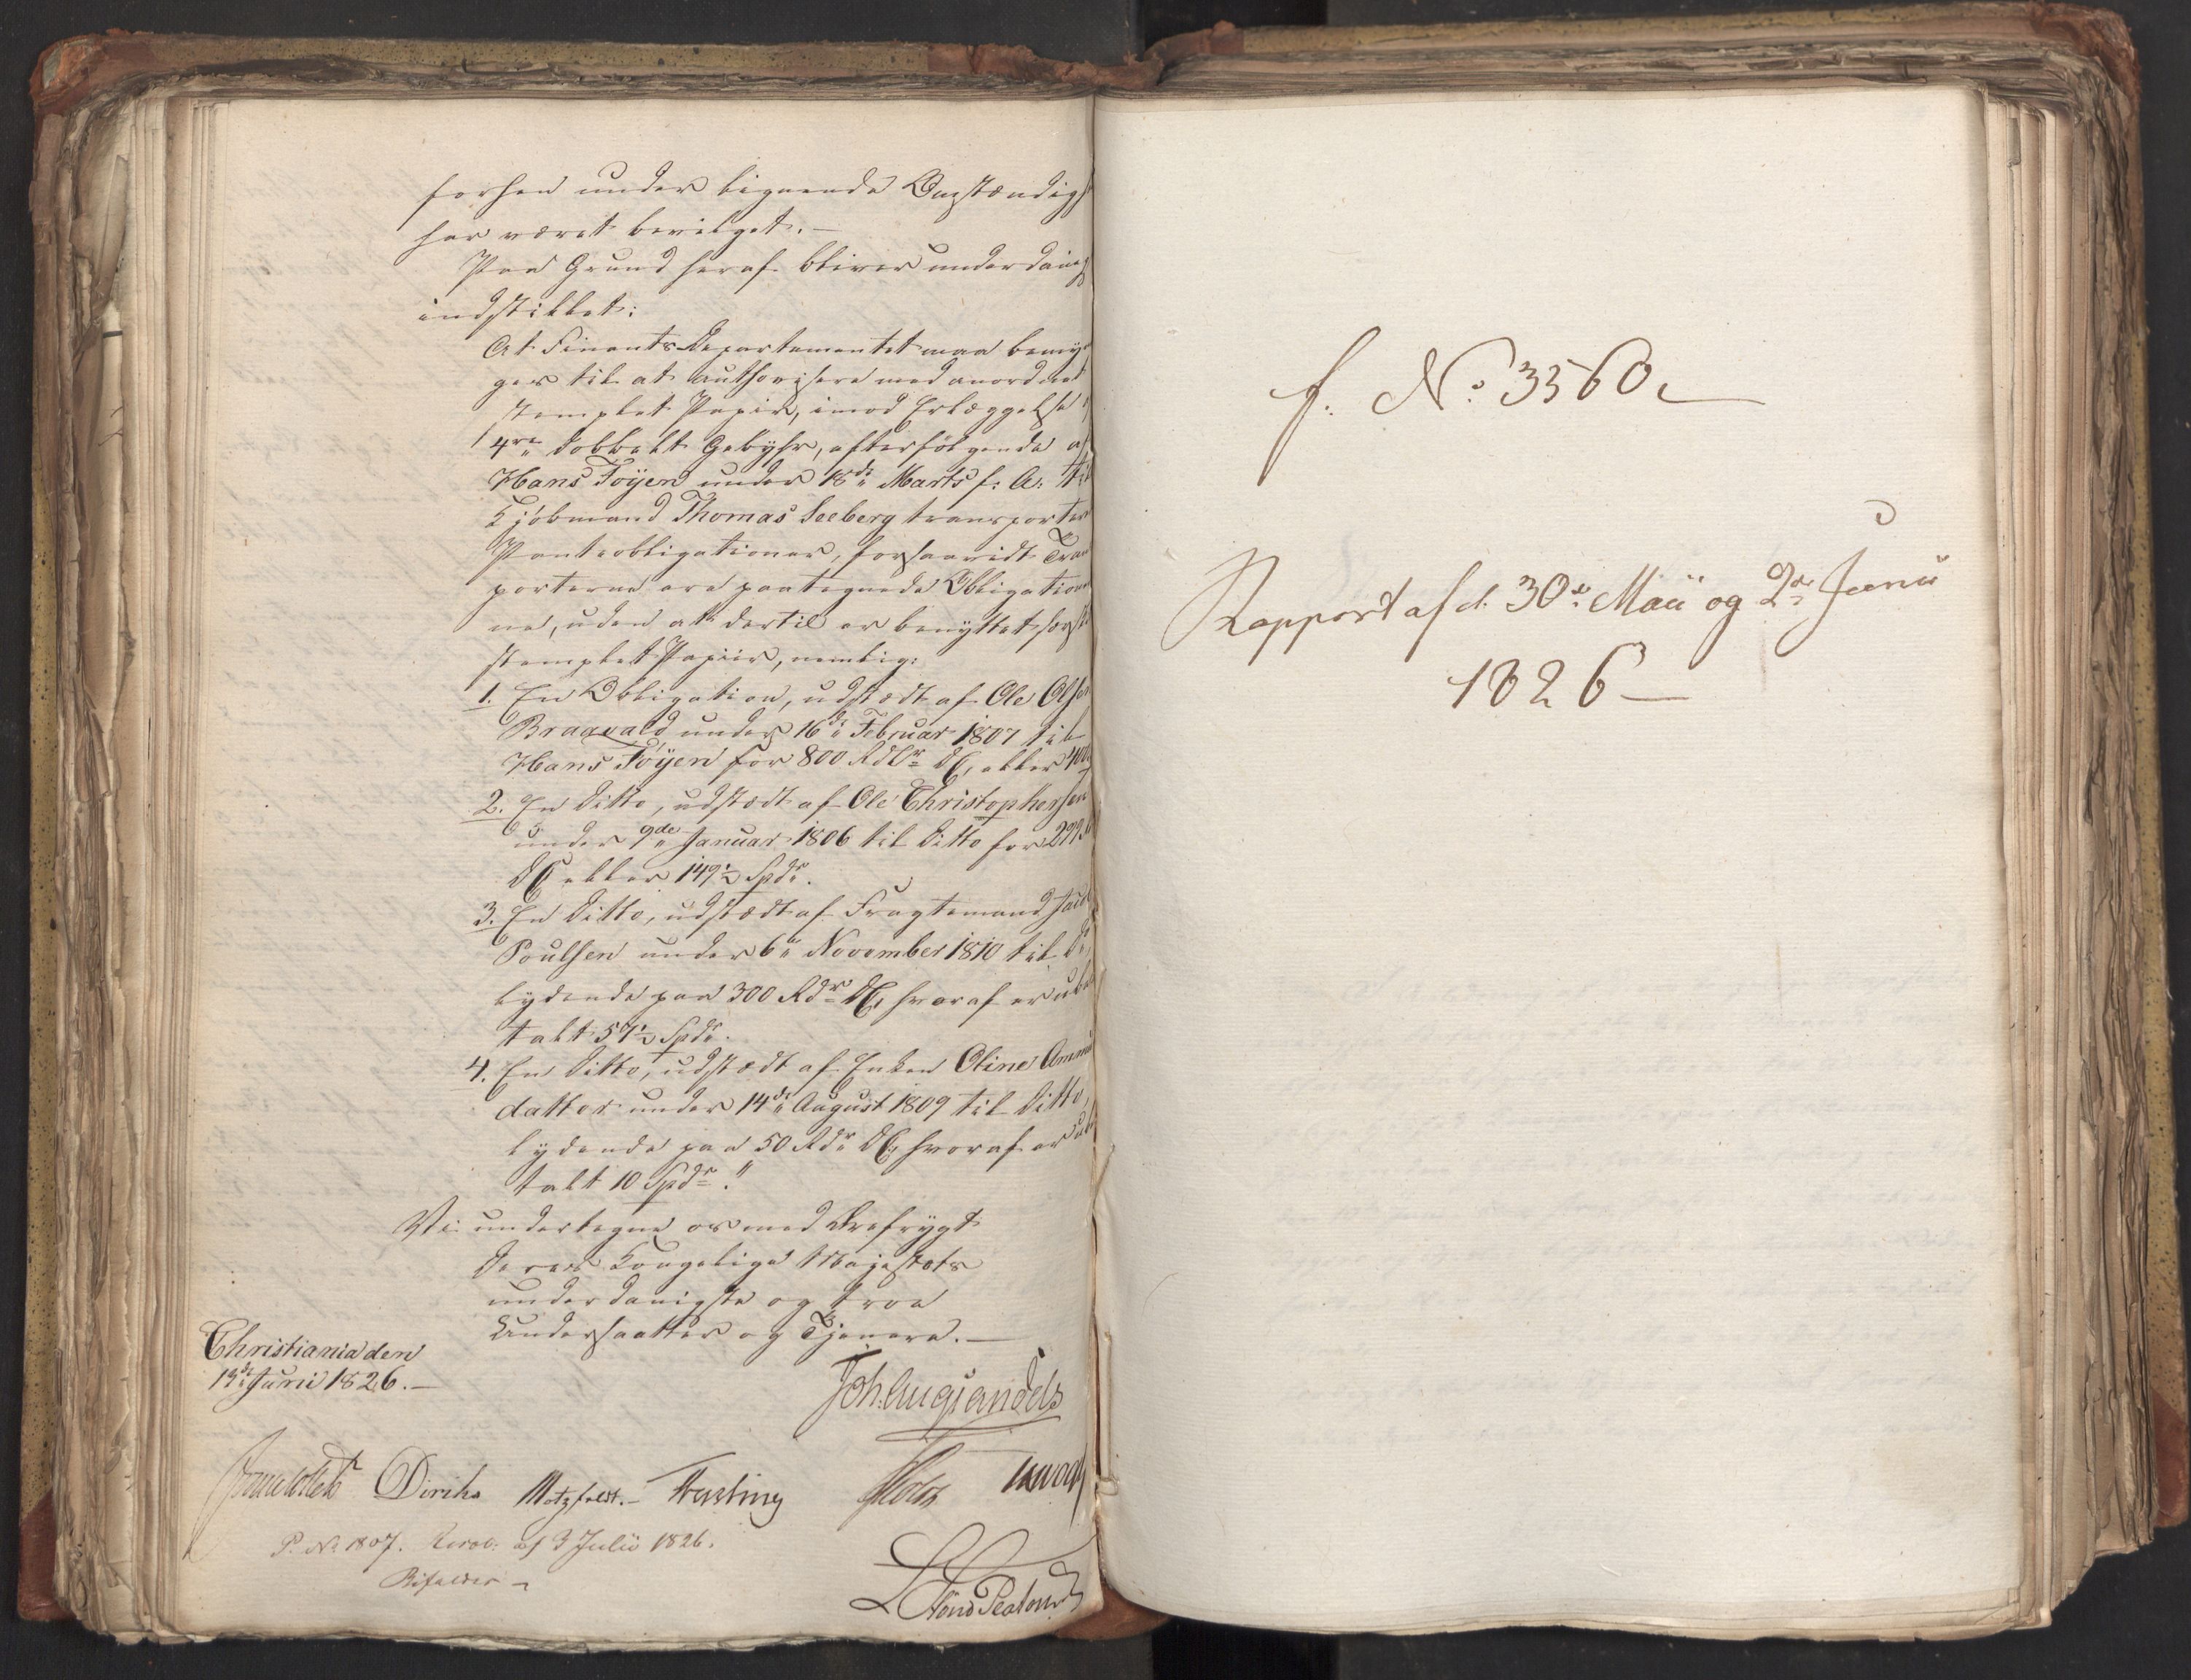 forhen under lignende Omstændigh
har været bevilget.—
Paa Grund heraf bliver underdanigst
indstillet:
At Finants-Departementet maa bemyn
ges til at authorisere med anordnet
stemplet Papir, imod Erlæggelse af
4re dobbelt Gebyhr, efterfølgende af
Hans Töÿen under 18de Marts f: A: til
Kjöbmand Thomas Seeberg transporter
Panteobligationer, forsaavidt Trans
porterne ere paategnede Obligatione
ne, uden at dertil er benyttet særsk
stemplet Papiir, nemlig:
1. En Obligation, udstædt af Ole Olsen
Bragvald under 16de Februar 1807 til
Hans Töÿen for 800 Rdlr DC, eller 400
2. En Ditto, udstædt af Ole Christophersen
under 9de Januar 1806 til Ditto for 299
DC eller 149½ Spdr.
3. En Ditto, udstædt af Fragtemand Jacob
Poulsen under 6te November 1810 til Do,
lydende paa 300 Rdr DC, hvoraf er ube
talt 57½ Spdr.
4. En Ditto, udstædt af Enken Oline Amm
datter under 14de August 1809 til Ditto,
lydende paa 50 Rdr DC, hvoraf er ube
talt 10 Spdr."
Vi undertegne os med Ærefrygt
Deres Kongelige Majestæts
underdanigste og troe
Undersaatter og Tjenere.—
Christiania den
19de Junii 1826.—
Joh. Aug. Sandels
J Collett Diriks Motzfeldt.— Treschow Holst
P. No. 1807. Resol: af 3 Julii 1826.
Bifaldes —
f. No. 3560.
Rapport af d. 30te Maii og 2den Junii
1826—